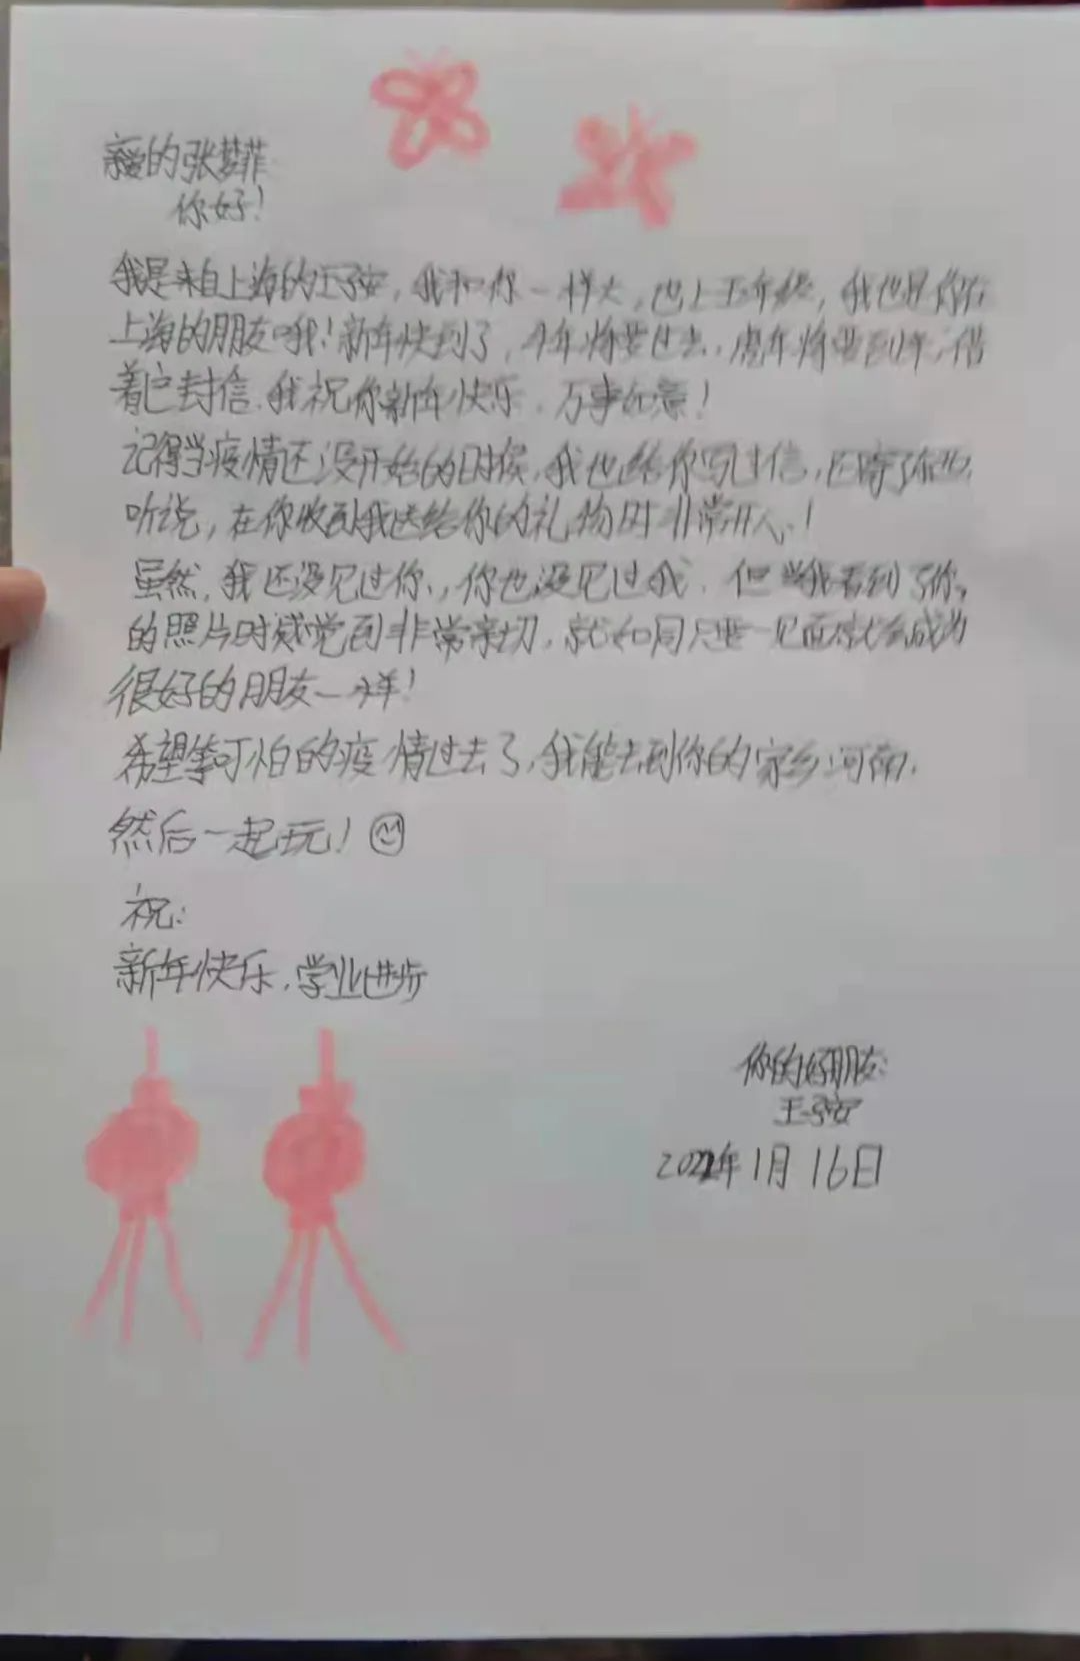 亲爱的张梦菲
你好!
我是来自上海的王子安,我和你一样大,也上五年级,我也是你在
上海的朋友哦!新年快到了,牛年将要过去,虎年将要到来,借
着这封信,我祝你新年快乐,万事如意!
记得当疫情还没开始的时候,我也给你写过信,还寄了
听说,在你收到我送给你的礼物时非常开心!
虽然,我还没见过你,你也没见过我,但当我看到了你
的照片时感觉到非常亲切,就如同只要一见面就会成为
很好的朋友一样!
希望等可怕的疫情过去了,我能去到你的家乡河南,
然后一起玩!
祝:
新年快乐,学业进步
你的好朋友:
王子安
2022年1月16日